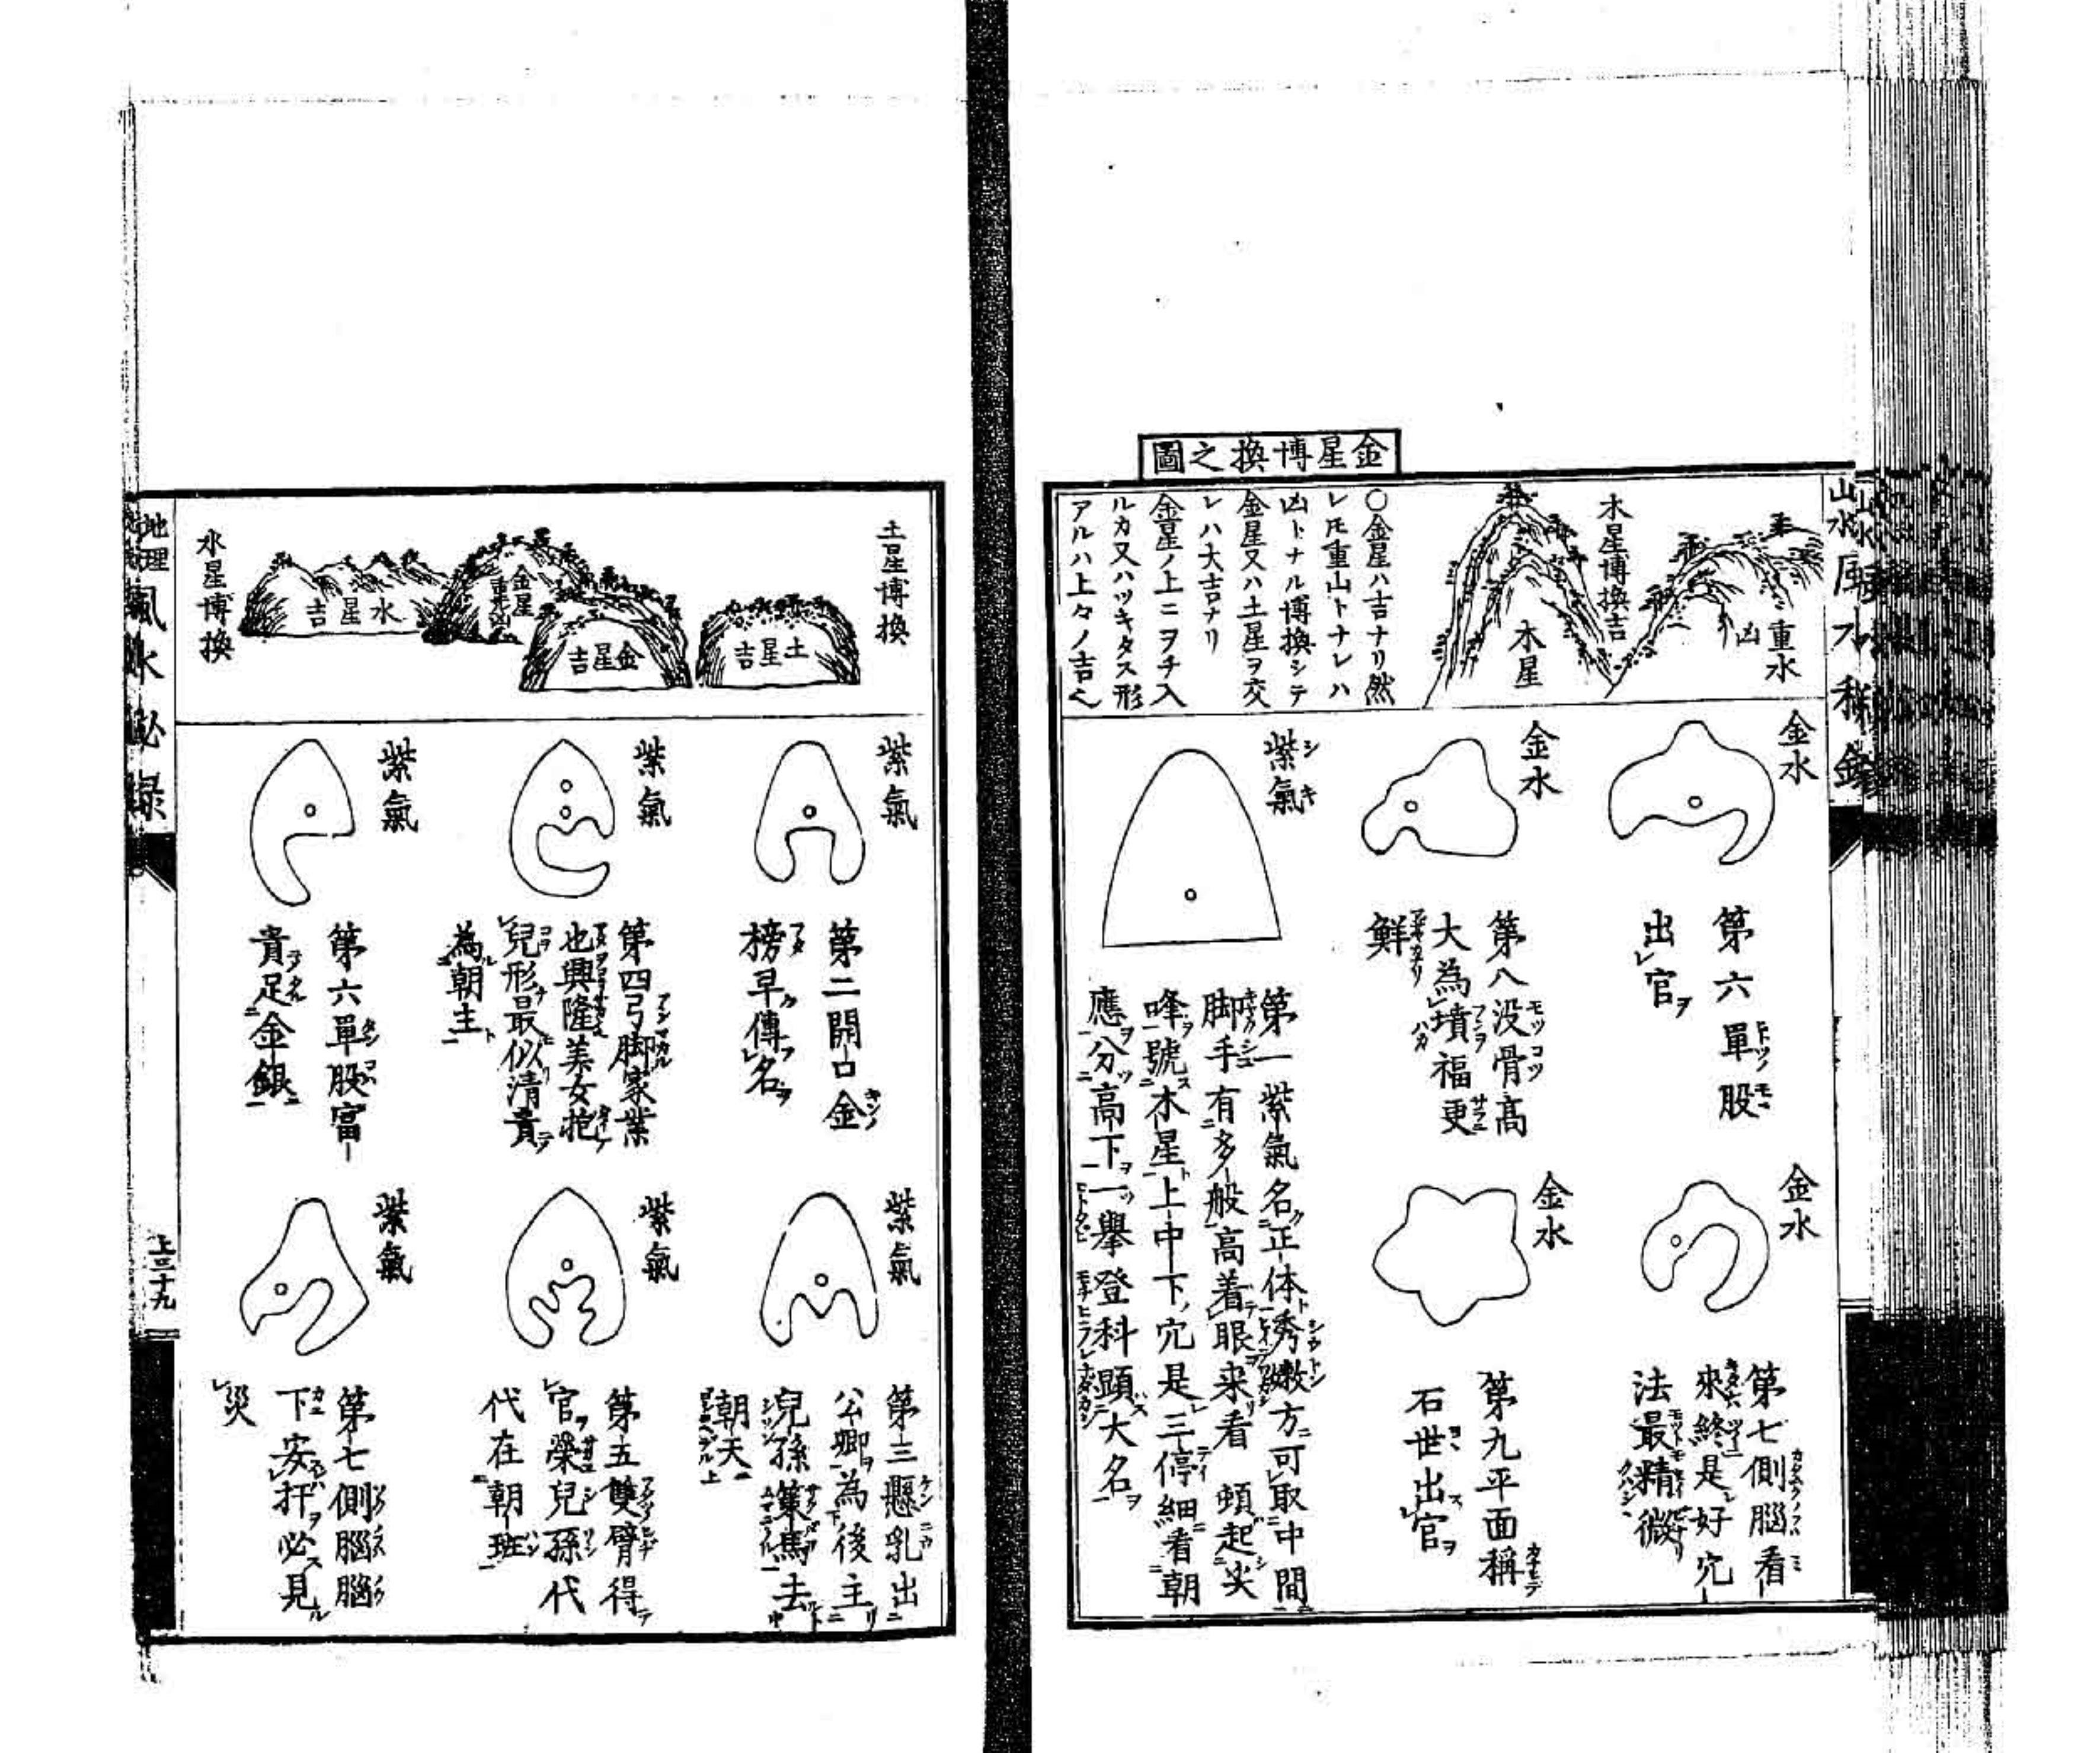 金星博換之圖
重水
凶
木星博換吉
木星
○金星ハ吉ナリ然
レ𪜈重山トナレハ
凶トナル博換シテ
金星又ハ土星ヲ交
レハ大吉ナリ
金星ノ上ニヲチ入
ルカ又ハツキタス形
アルハ上々ノ吉
金水
第六單股
出官
金水
第七側腦看
來終是好穴
法最精微
金水
第八没骨高
大為墳福更
鮮
金水
第九平面稱
石世出官
紫氣
第一紫氣名正体秀嫩方可取中間
脚手有多般高着眼来看頓起尖
峰號木星上中下穴是三停細看朝
應分高下一擧登科顕大名
土星博換
土星吉
金星吉
金星重
凶
水星吉
水星博換
紫氣
第二開口金
榜早傳名
紫氣
第三懸乳出
公卿為後主
兒孫策馬去
朝天
紫氣
第四弓脚家業
也興隆美女抱
兒形最似清貴
為朝主
紫氣
第五雙臂得
官榮兒孫代
代在朝班
紫氣
第六單股富
貴足金銀
紫氣
第七側腦腦
下安扦必見
災
地理風水秘録
上三十九